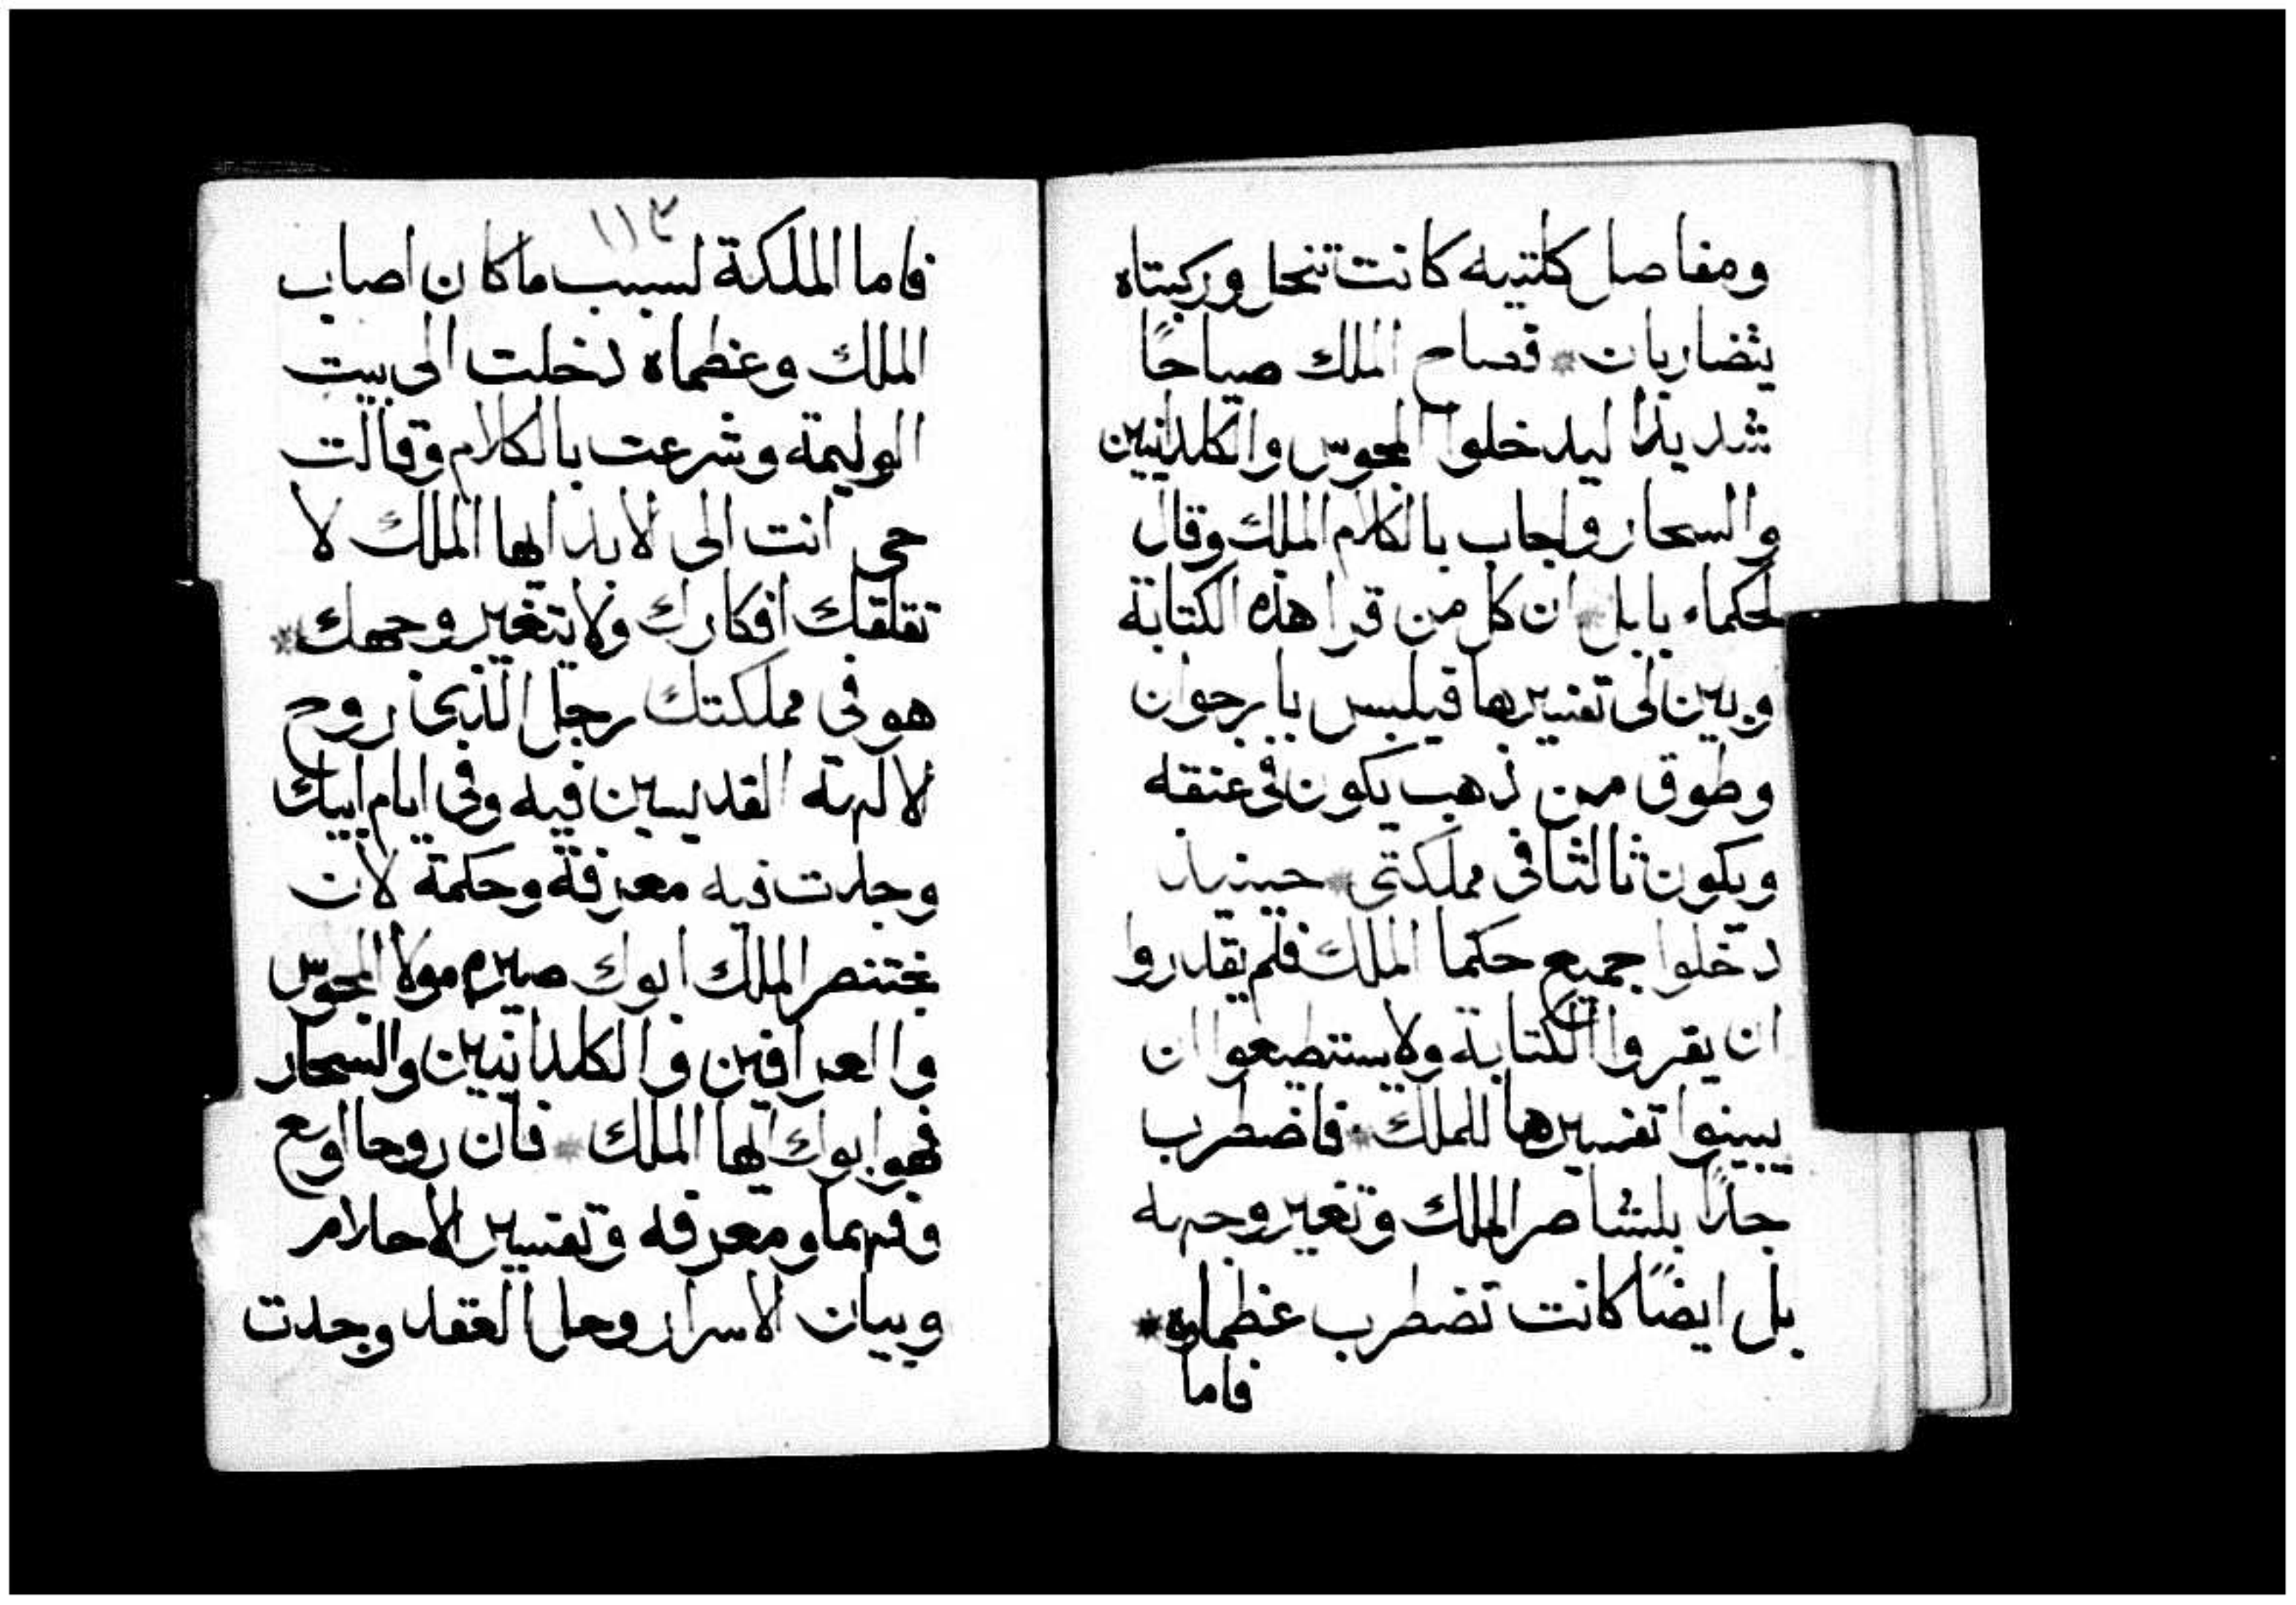 ومفاصل كلتيه كانت تنحل وركبتاه
يتضاربان * فصاح الملك صياحًا
شديدًا ليدخلوا المجوس والكلدانيين
والسحار واجاب بالكلام الملك وقال
لحكماء بابل * ان كل من قرا هذه الكتابة
وبين لى تفسيرها فيلبس بابرجوان
وطوق من ذهب يكون فى عنقه
ويكون ثالثا فى مملكتى * حينيذ
دخلوا جميع حكما الملك فلم يقدروا
ان يقروا الكتابة ولا يستطيعوا ان
يبينوا تفسيرها للملك * فاضطرب
جدًا بلشاصر الملك وتغير وجهه
بل ايضًا كانت تضطرب عظماوه *
فاما
١١٣
فاما الملكة لسبب ما كان اصاب
الملك وعظماه دخلت الى بيت
الوليمة وشرعت بالكلام وقالت
حى انت الى الابد ايها الملك لا
تقلقك افكارك ولا يتغير وجهك *
هو فى مملكتك رجل الذى روح
الالهة القديسين فيه وفى ايام ابيك
وجدت فيه معرفة وحكمة لان
بختنصر الملك ابوك صيره مولا المجوس
والعرافين والكلدانيين والسحار
فهو ابوك ايها الملك * فان روحا اوسع
وفهما ومعرفه وتفسير الاحلام
وبيان الاسرار وحل العقد وجدت